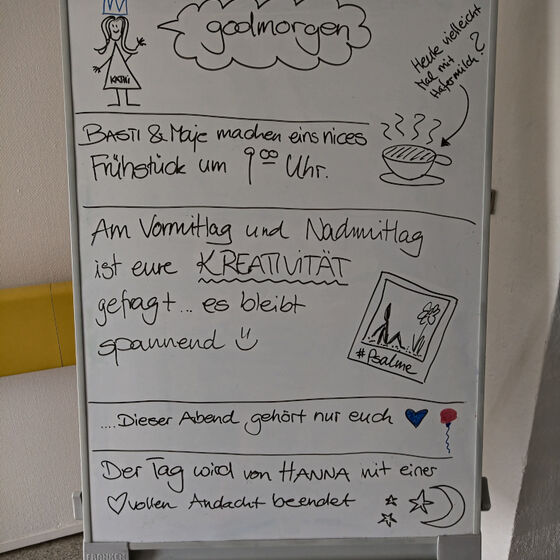 goodmorgen
KATHI
Heute vielleicht
Mal mit
Hafermilch?
BASTI & Maje machen eins nices
Frühstück um 9⁰⁰ Uhr.
Am Vormittag und Nachmittag
ist eure KREATIVITÄT
gefragt... es bleibt
spannend
#Psalme
....Dieser Abend gehört nur euch
Der Tag wird von HANNA mit einer
♡vollen Andacht beendet
FRANKEN